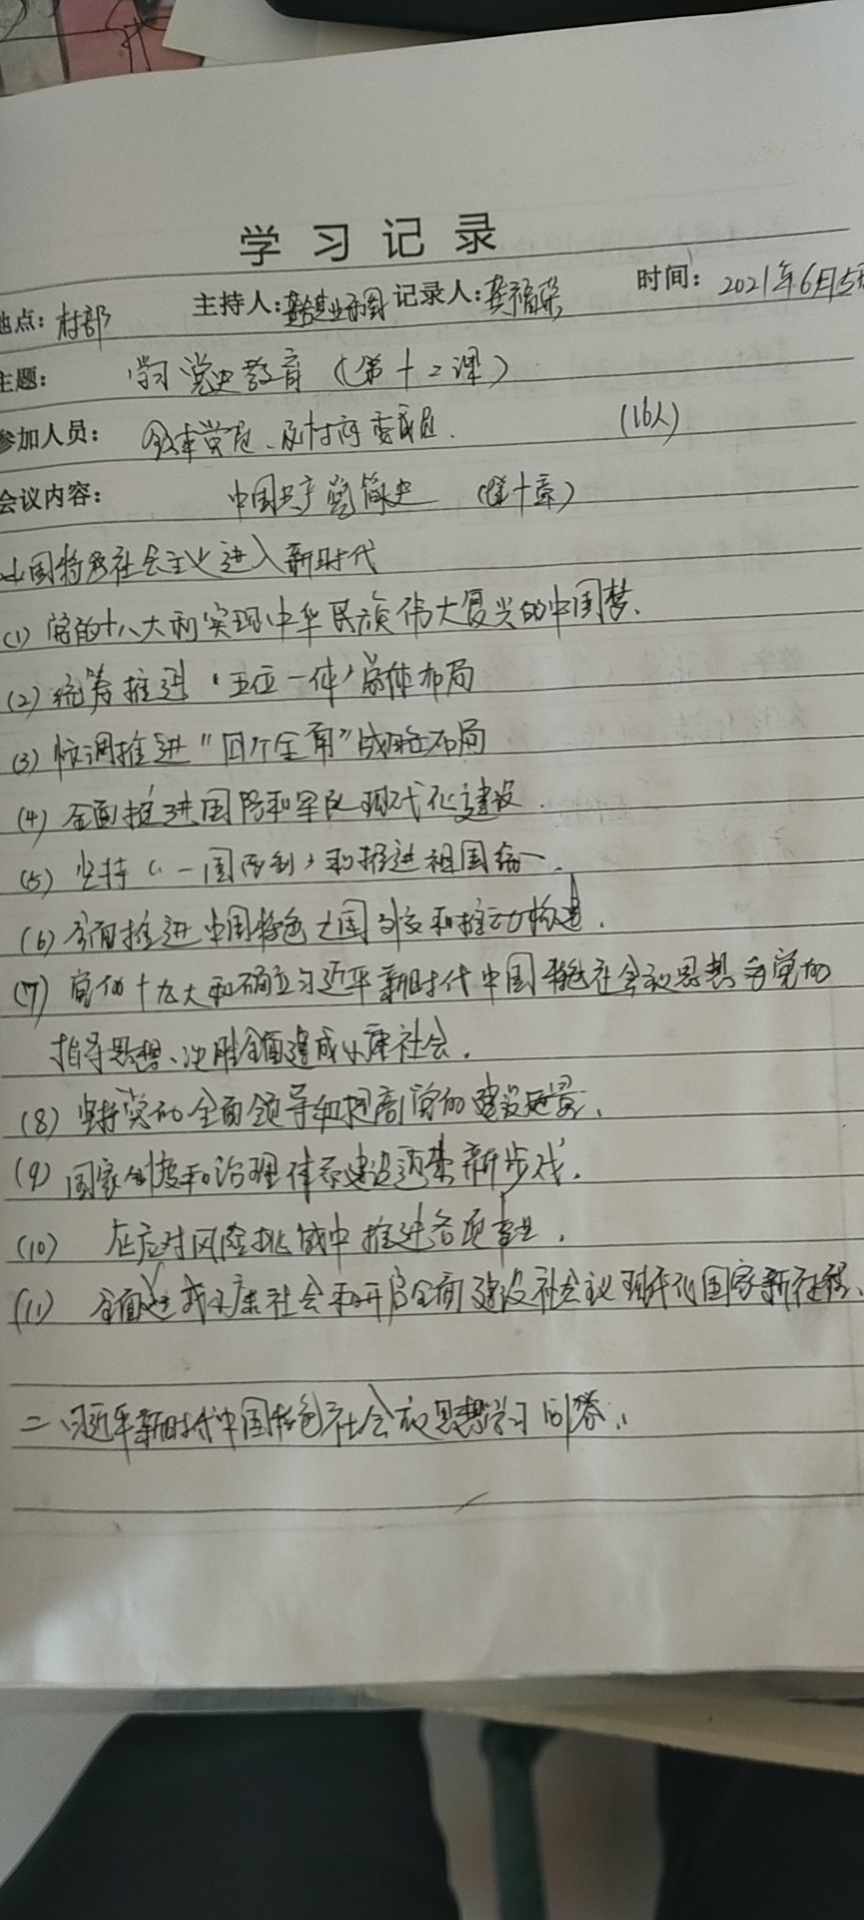 学习记录
地点：村部 主持人： 记录人：龚福荣 时间：2021年6月5日
主题： 学习党史教育（第十二课）
参加人员： 党员、及村府委成员. （16人）
会议内容： 中国共产党简史 （第十章）
中国特色社会主义进入新时代
（1）党的十八大和实现中华民族伟大复兴的中国梦、
（2）统筹推进‘五位一体’总体布局
（3）协调推进“四个全面”战略布局
（4）全面推进国防和军队现代化建设.
（5）坚持‘一国两制’和推进祖国统一.
（6）全面推进中国特色大国外交和推动构建.
（7）党的十九大和确立习近平新时代中国特色社会主义思想为党的
指导思想、决胜全面建成小康社会.
（8）坚持党的全面领导和提高党的建设质量、
（9）国家制度和治理体系建设迈出新步伐.
（10） 在应对风险挑战中推进各项事业.
（11） 全面建成小康社会和开启全面建设社会主义现代化国家新征程、
二、习近平新时代中国特色社会主义思想学习问答.